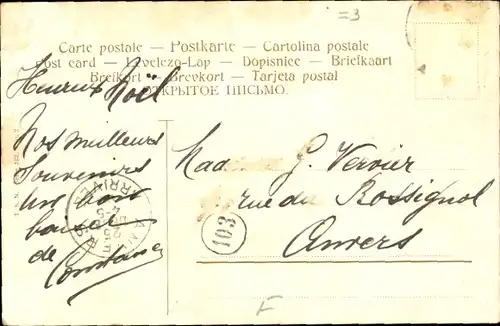 =3
Carte postale — Postkarte — Cartolina postale
Post card — Levelezö-Lap — Dopisnice — Briefkaart
Brefkort — Brevkort — Tarjeta postal
ОТКРЫТОЕ ПИСЬМО.
Heureux Noël
Nos meilleurs
souvenirs
un bon
de
Constance
Mad G. Vervier
rue du Rossignol
Anvers
103
F